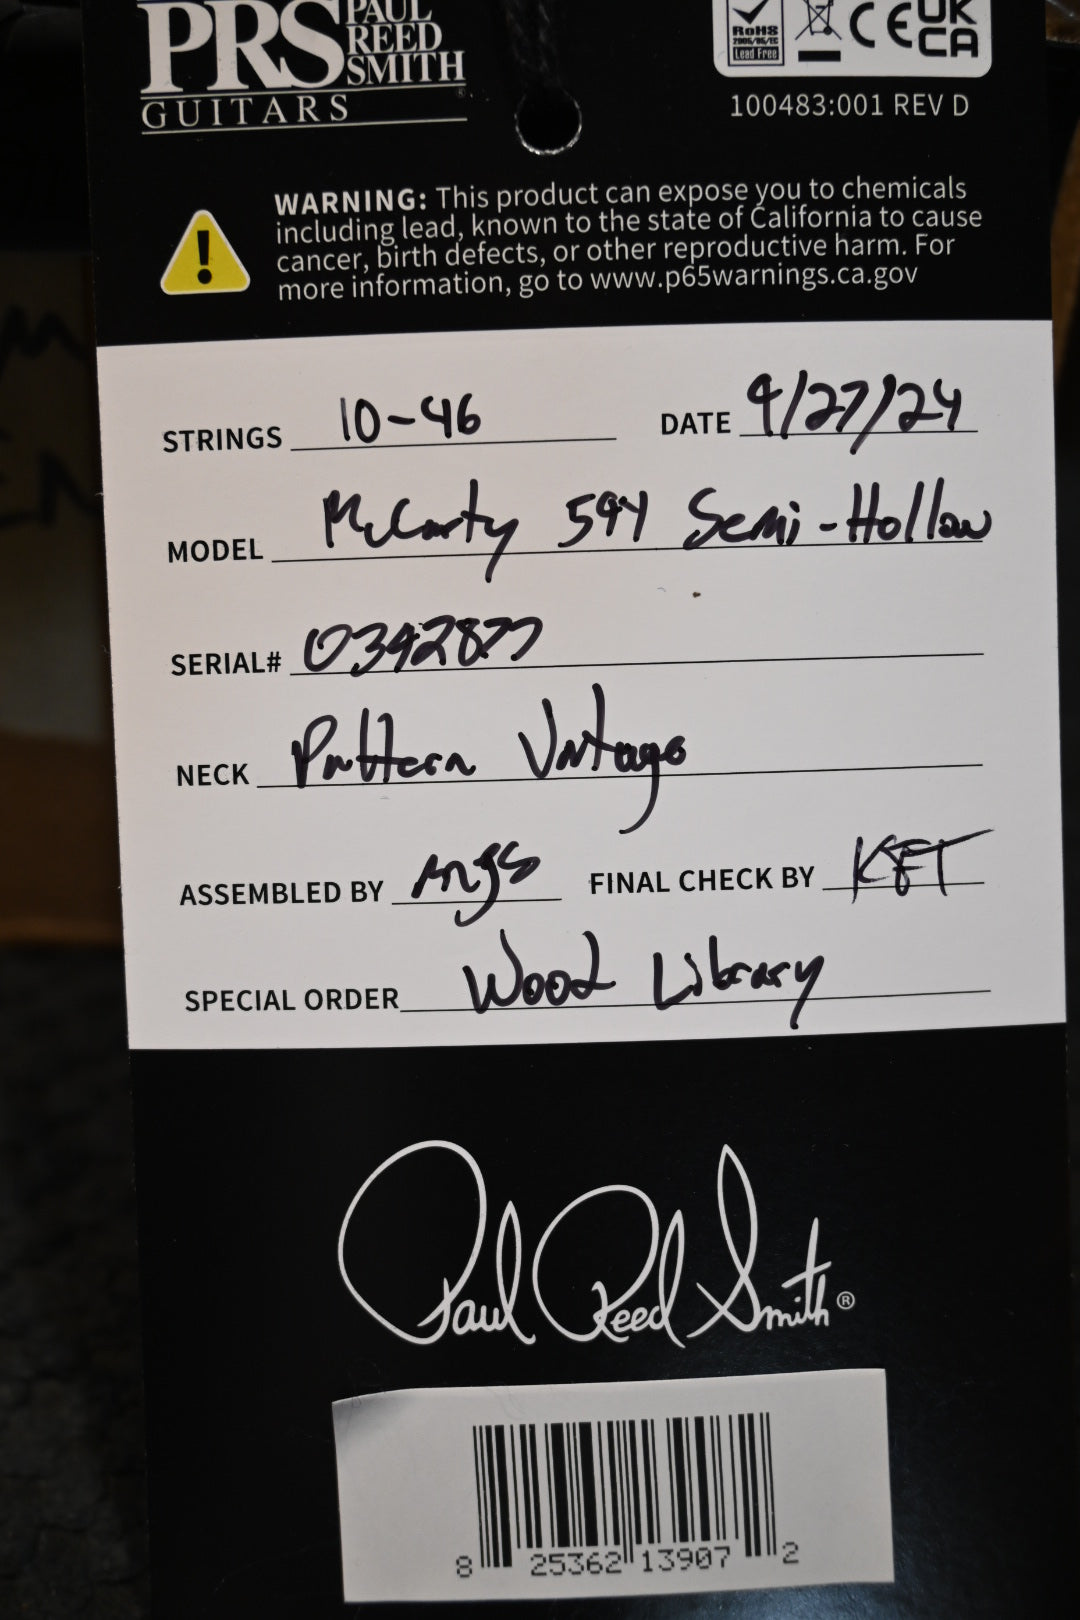 PRS PAUL
REED
SMITH
GUITARS ®
RoHS
2005/95/EC
Lead Free
CE UK
CA
100483:001 REV D
WARNING: This product can expose you to chemicals
including lead, known to the state of California to cause
cancer, birth defects, or other reproductive harm. For
more information, go to www.p65warnings.ca.gov
STRINGS 10-46 DATE 9/27/24
MODEL McCarty 594 Semi-Hollow
SERIAL# 0392877
NECK Pattern Vintage
ASSEMBLED BY FINAL CHECK BY KFT
SPECIAL ORDER Wood Library
Paul Reed Smith®
8 25362 13907 2